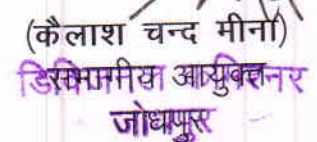 (कैलाश चन्द मीना)
संभागीय आयुक्त
जोधपुर